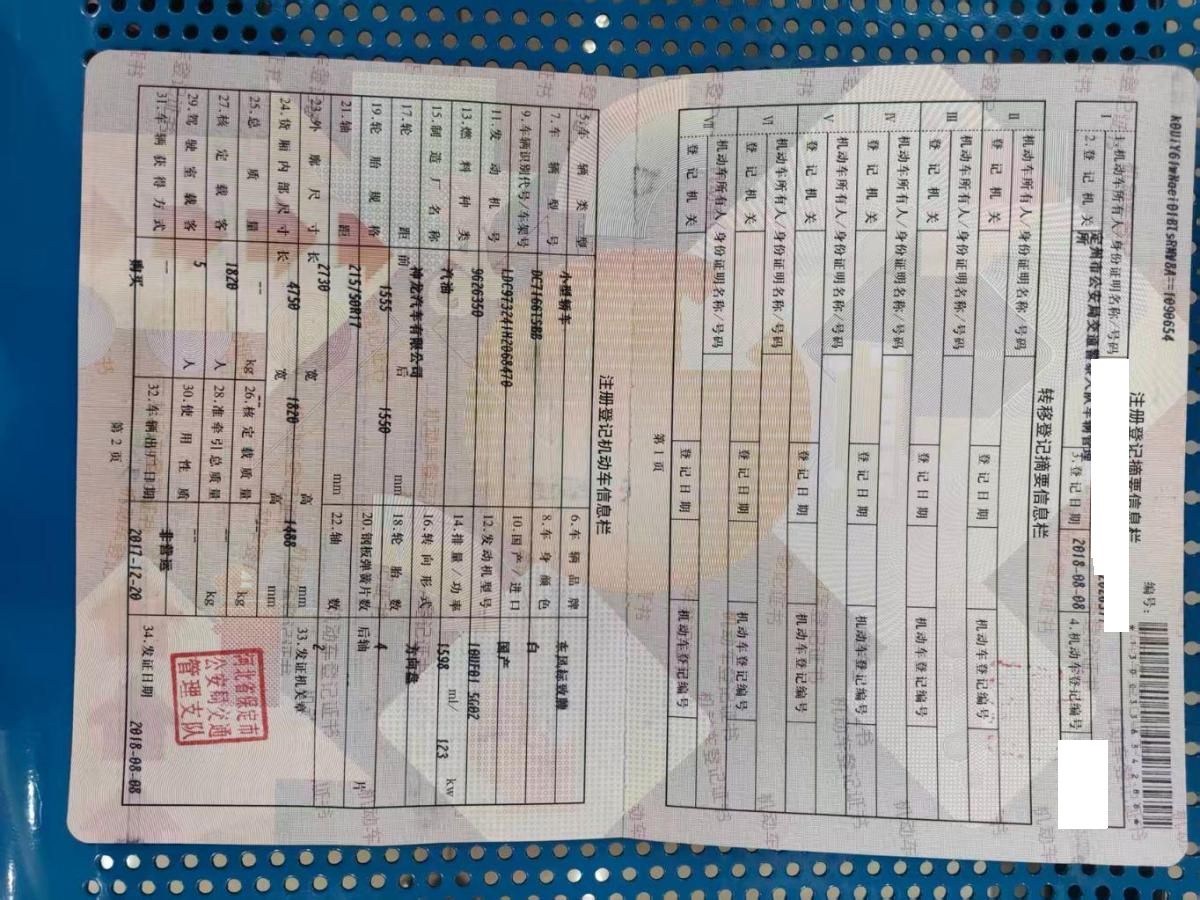 k0U1Y61wNoei01BTsRNV8A==1090654
注册登记摘要信息栏
编号:
*130033634288*
Ⅰ
1.机动车所有人/身份证明名称/号码
2.登记机关
3.登记日期 2018-08-08
4.机动车登记编号
转移登记摘要信息栏
Ⅱ
机动车所有人/身份证明名称/号码
登记机关 登记日期 机动车登记编号
Ⅲ
机动车所有人/身份证明名称/号码
登记机关 登记日期 机动车登记编号
Ⅳ
机动车所有人/身份证明名称/号码
登记机关 登记日期 机动车登记编号
Ⅴ
机动车所有人/身份证明名称/号码
登记机关 登记日期 机动车登记编号
Ⅵ
机动车所有人/身份证明名称/号码
登记机关 登记日期 机动车登记编号
Ⅶ
机动车所有人/身份证明名称/号码
登记机关 登记日期 机动车登记编号
第1页
注册登记机动车信息栏
5.车辆类型 小型轿车 6.车辆品牌 东风标致牌
7.车辆型号 DC7166TSBB 8.车身颜色 白
9.车辆识别代号/车架号 LDC973241H2068470 10.国产/进口 国产
11.发动机号 9626350 12.发动机型号 10UF01 5G02
13.燃料种类 汽油 14.排量/功率 1598 ml/ 123 kw
15.制造厂名称 神龙汽车有限公司 16.转向形式 方向盘
17.轮距 前 1555 后 1550 mm 18.轮胎数 4
19.轮胎规格 215/50R17 20.钢板弹簧片数 后轴 片
21.轴距 2730 mm 22.轴数 2
23.外廓尺寸 长 4750 宽 1820 高 1488 mm 33.发证机关章
24.货厢内部尺寸 长 宽 高 mm
25.总质量 1820 kg 26.核定载质量 -- kg
27.核定载客 5 人 28.准牵引总质量 -- kg
29.驾驶室载客 -- 人 30.使用性质 非营运
31.车辆获得方式 购买 32.车辆出厂日期 2017-12-20 34.发证日期 2018-08-08
河北省保定市
公安局交通
管理支队
第2页